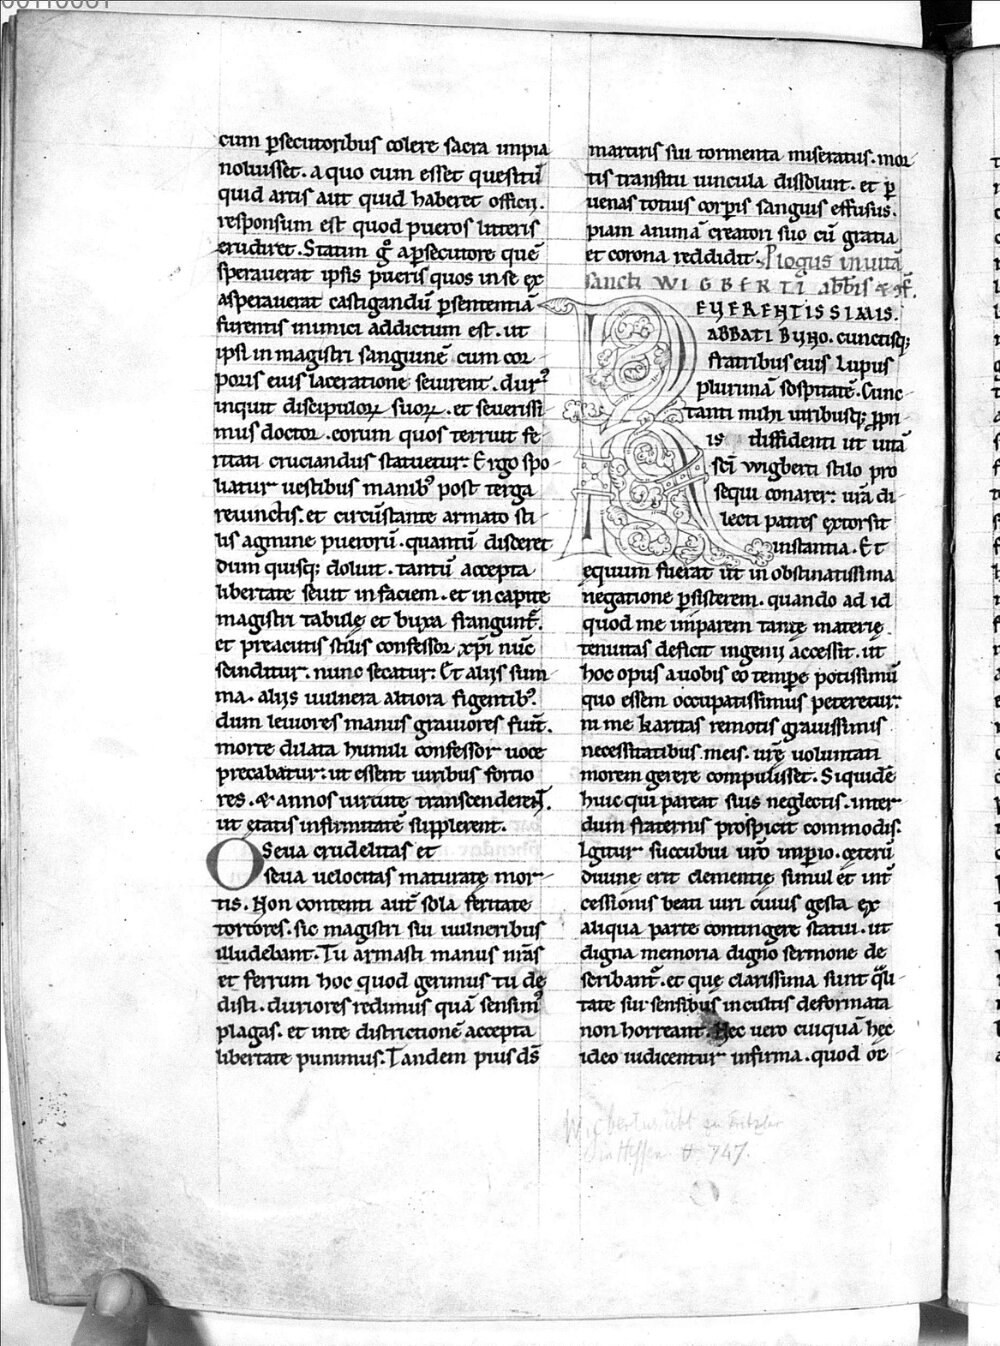 00110061
cum ꝑsecutoribus colere sacra impia
noluisset. a quo cum esset quesitū
quid artis aut quid haberet officii.
responsum est quod pueros litteris
erudiret. Statim gͦ a ꝑsecutore quē
sperauerat ipsis pueris quos in se ex
asperauerat castigandū ꝑ sententiā
furentis inimici addictum est. ut
ipsi in magistri sanguinē cum cor
poris eius laceratione seuirent. dur᷒
inquit discipuloꝝ suoꝝ. et seuerissi
mus doctor. eorum quos terruit fe
ritati cruciandus statuetur. Ergo spo
liatur uestibus manibꝰ post terga
reuinctis. et circūstante armato sti
lis agmine puerorū. quantū disceret
dum quisqꝫ doluit. tantū accepta
libertate seuit in faciem. et in capite
magistri tabule et buxa frangunt᷑.
et preacutis stilis confessor xp̄i nūc
scinditur. nunc secatur: Et alijs sum
ma. alijs uulnera altiora figentibꝰ.
dum leuiores manus grauiores fuīt.
morte dilata humili confessor uoce
precabatur: ut essent uiribus fortio
res. & annos uirtute transcenderēt.
ut ętatis infirmitatē supplerent.
O Seua crudelitas et
seua uelocitas maturate mor
tis. Non contenti aut̄ sola feritate
tortores. sic magistri sui uulneribus
illudebant. Tu armasti manus nr̄as
et ferrum hoc quod gerimus tu de
disti. duriores redimus quā sensimꝰ
plagas. et in te districtionē accepta
libertate punimus. Tandem pius ds̄
martiris sui tormenta miseratus. mor
tis transitu uincula dissoluit. et ꝑ
uenas totius corꝑis sanguis effusus.
piam animā creatori suo cū gratia
et corona reddidit. Plogus in uitā
sancti WIGBERTI abb̄is & ꝯf.
REUERENTISSIMIS.
ABBATI BUNO. cunctisqꝫ
fratribus eius Lupus
plurimā sospitatē. Cunc
tanti mihi uiribusqꝫ ꝓpri
is diffidenti ut uitā
sc̄i wigberti stilo pro
sequi conarer: ur̄a di
lecti patres extorsit
instantia. Et
equum fuerat ut in obstinatissima
negatione ꝑsisterem. quando ad id
quod me imparem tantę materię
tenuitas deficit ingenij accessit. ut
hoc opus a uobis eo tempe potissimū
quo essem occupatissimus peteretur:
ni me karitas remotis grauissimis
necessitatibus meis. ur̄ę uoluntati
morem gerere compulisset. Siquidē
huic qui pareat suis neglectis. inter
dum fraternis prospicit commodis.
Igitur succubui ur̄o imꝑio. ceterū
diuinę erit clementię simul et int̄
cessionis beati uiri cuius gesta ex
aliqua parte contingere statui. ut
digna memoria digno sermone de
scribant᷑. et que clarissima sunt q̄li
tate sui sensibus incultis deformata
non horreant. Hec uero cuiquā hec
ideo iudicentur infirma. quod oc
Wicbertus abt zu Fritzlar
in Hessen † 747.